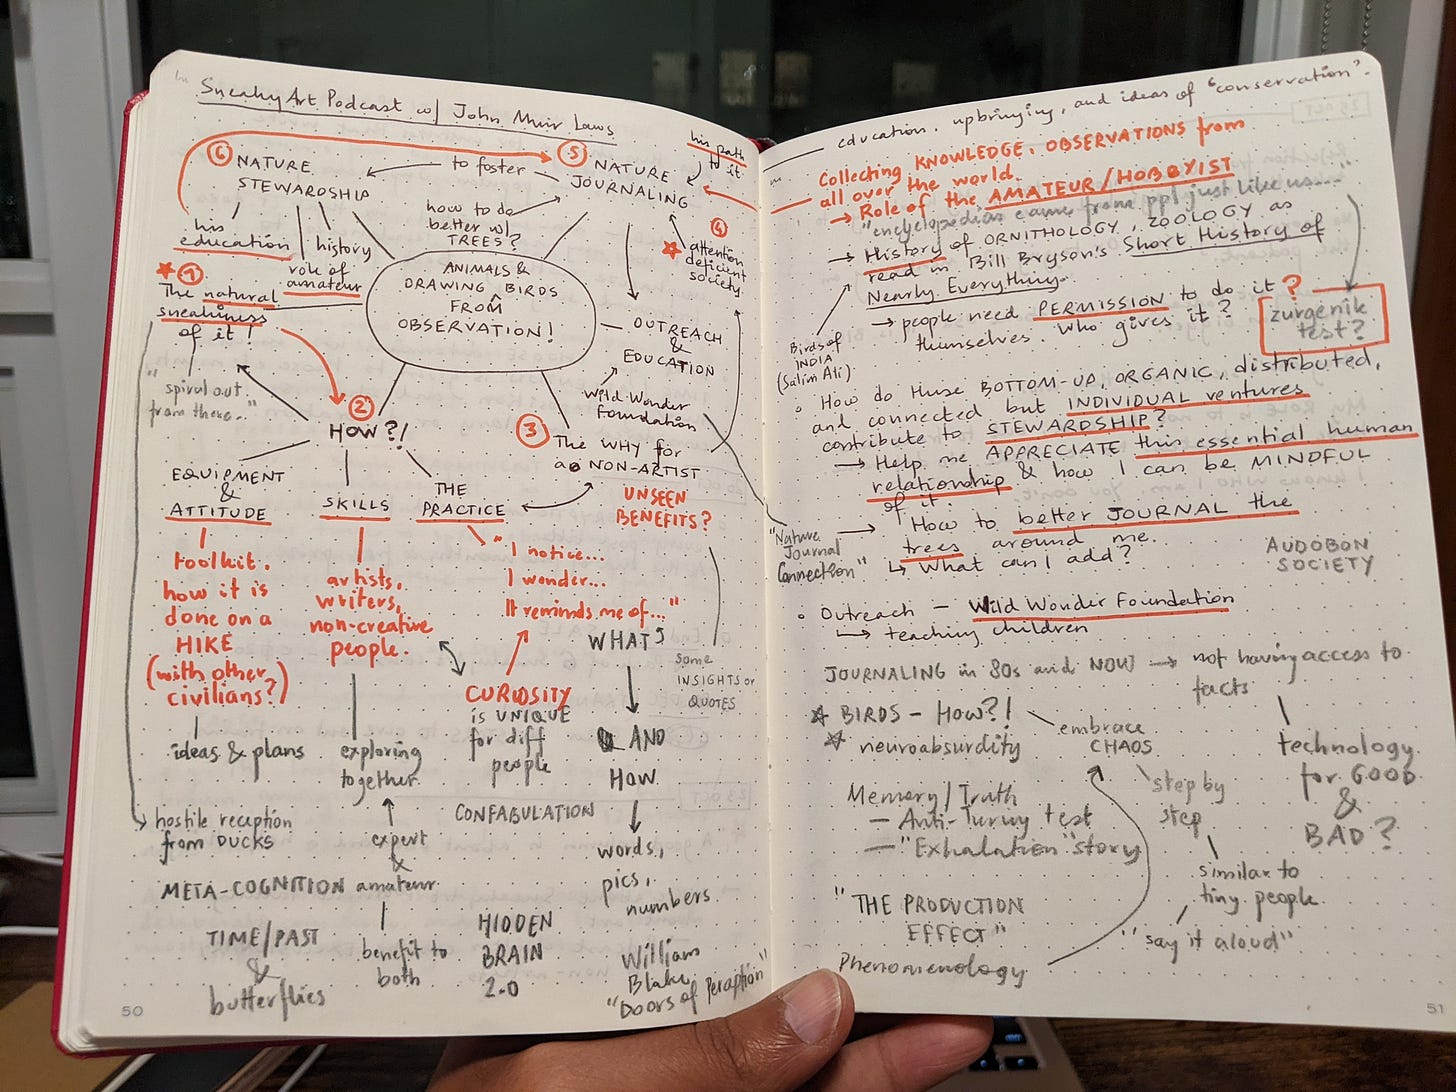 SneakyArt Podcast w/ John Muir Laws
his path
to it.
6 NATURE
STEWARDSHIP
to foster
5 NATURE
JOURNALING
how to do
better w/
TREES?
his
education
history
role of
amateur
4
attention
deficient
society
1
The natural
sneakiness
of it!
ANIMALS &
DRAWING BIRDS
FROM
OBSERVATION!
OUTREACH
&
EDUCATION
Wild Wonder
Foundation
"spiral out
from there.."
2
HOW?!
3 The WHY for
a NON-ARTIST
UNSEEN
BENEFITS?
EQUIPMENT
&
ATTITUDE
SKILLS
THE
PRACTICE
toolkit.
how it is
done on a
HIKE
(with other
civilians?)
artists,
writers,
non-creative
people.
"I notice...
I wonder...
It reminds me of..."
CURIOSITY
is UNIQUE
for diff
people
WHAT?
AND
HOW
words,
pics,
numbers.
some
INSIGHTS or
QUOTES
ideas & plans
exploring
together
hostile reception
from DUCKS
expert
&
amateur
CONFABULATION
META-COGNITION
TIME/PAST
&
butterflies
benefit to
both
HIDDEN
BRAIN
2.0
William
Blake
"Doors of Perception"
50
education, upbringing, and ideas of "conservation".
Collecting KNOWLEDGE, OBSERVATIONS from
all over the world.
→ Role of the AMATEUR/HOBBYIST
"encyclopedias came from ppl just like us...."
→ History of ORNITHOLOGY, ZOOLOGY as
read in Bill Bryson's Short History of
Nearly Everything.
→ people need PERMISSION to do it ?
themselves. Who gives it?
zurgenik
test?
Birds of
INDIA
(Salim Ali)
How do these BOTTOM-UP, ORGANIC, distributed,
and connected but INDIVIDUAL ventures
contribute to STEWARDSHIP?
→ Help me APPRECIATE this essential human
relationship & how I can be MINDFUL
of it.
"Nature
Journal
Connection"
How to better JOURNAL the
trees around me.
↳ What can I add?
AUDOBON
SOCIETY
Outreach — Wild Wonder Foundation
↳ teaching children
JOURNALING in 80s and NOW → not having access to
facts
BIRDS - HOW?!
neuroabsurdity
embrace
CHAOS
technology
for GOOD
&
BAD?
step by
step
Memory/Truth
- Anti-Turing test
- "Exhalation" story
similar to
tiny people.
"say it aloud"
"THE PRODUCTION
EFFECT"
Phenomenology
51